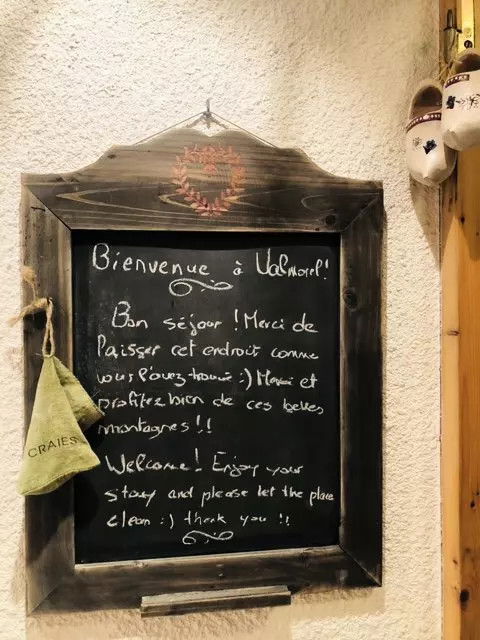 Bienvenue à Valmorel!
Bon séjour ! Merci de
laisser cet endroit comme
vous l'avez trouvé :) Merci et
profitez bien de ces belles
montagnes !!
Welcome! Enjoy your
stay and please let the place
clean :) thank you !!
CRAIES